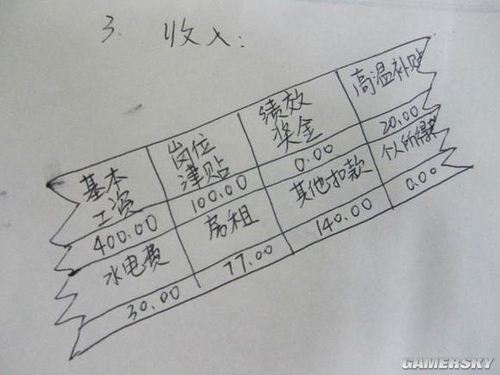 3. 收入:
基本工资 岗位津贴 绩效奖金 高温补贴
400.00 100.00 0.00 20.00
水电费 房租 其他扣款 个人所得税
30.00 77.00 140.00 0.00
GAMERSKY